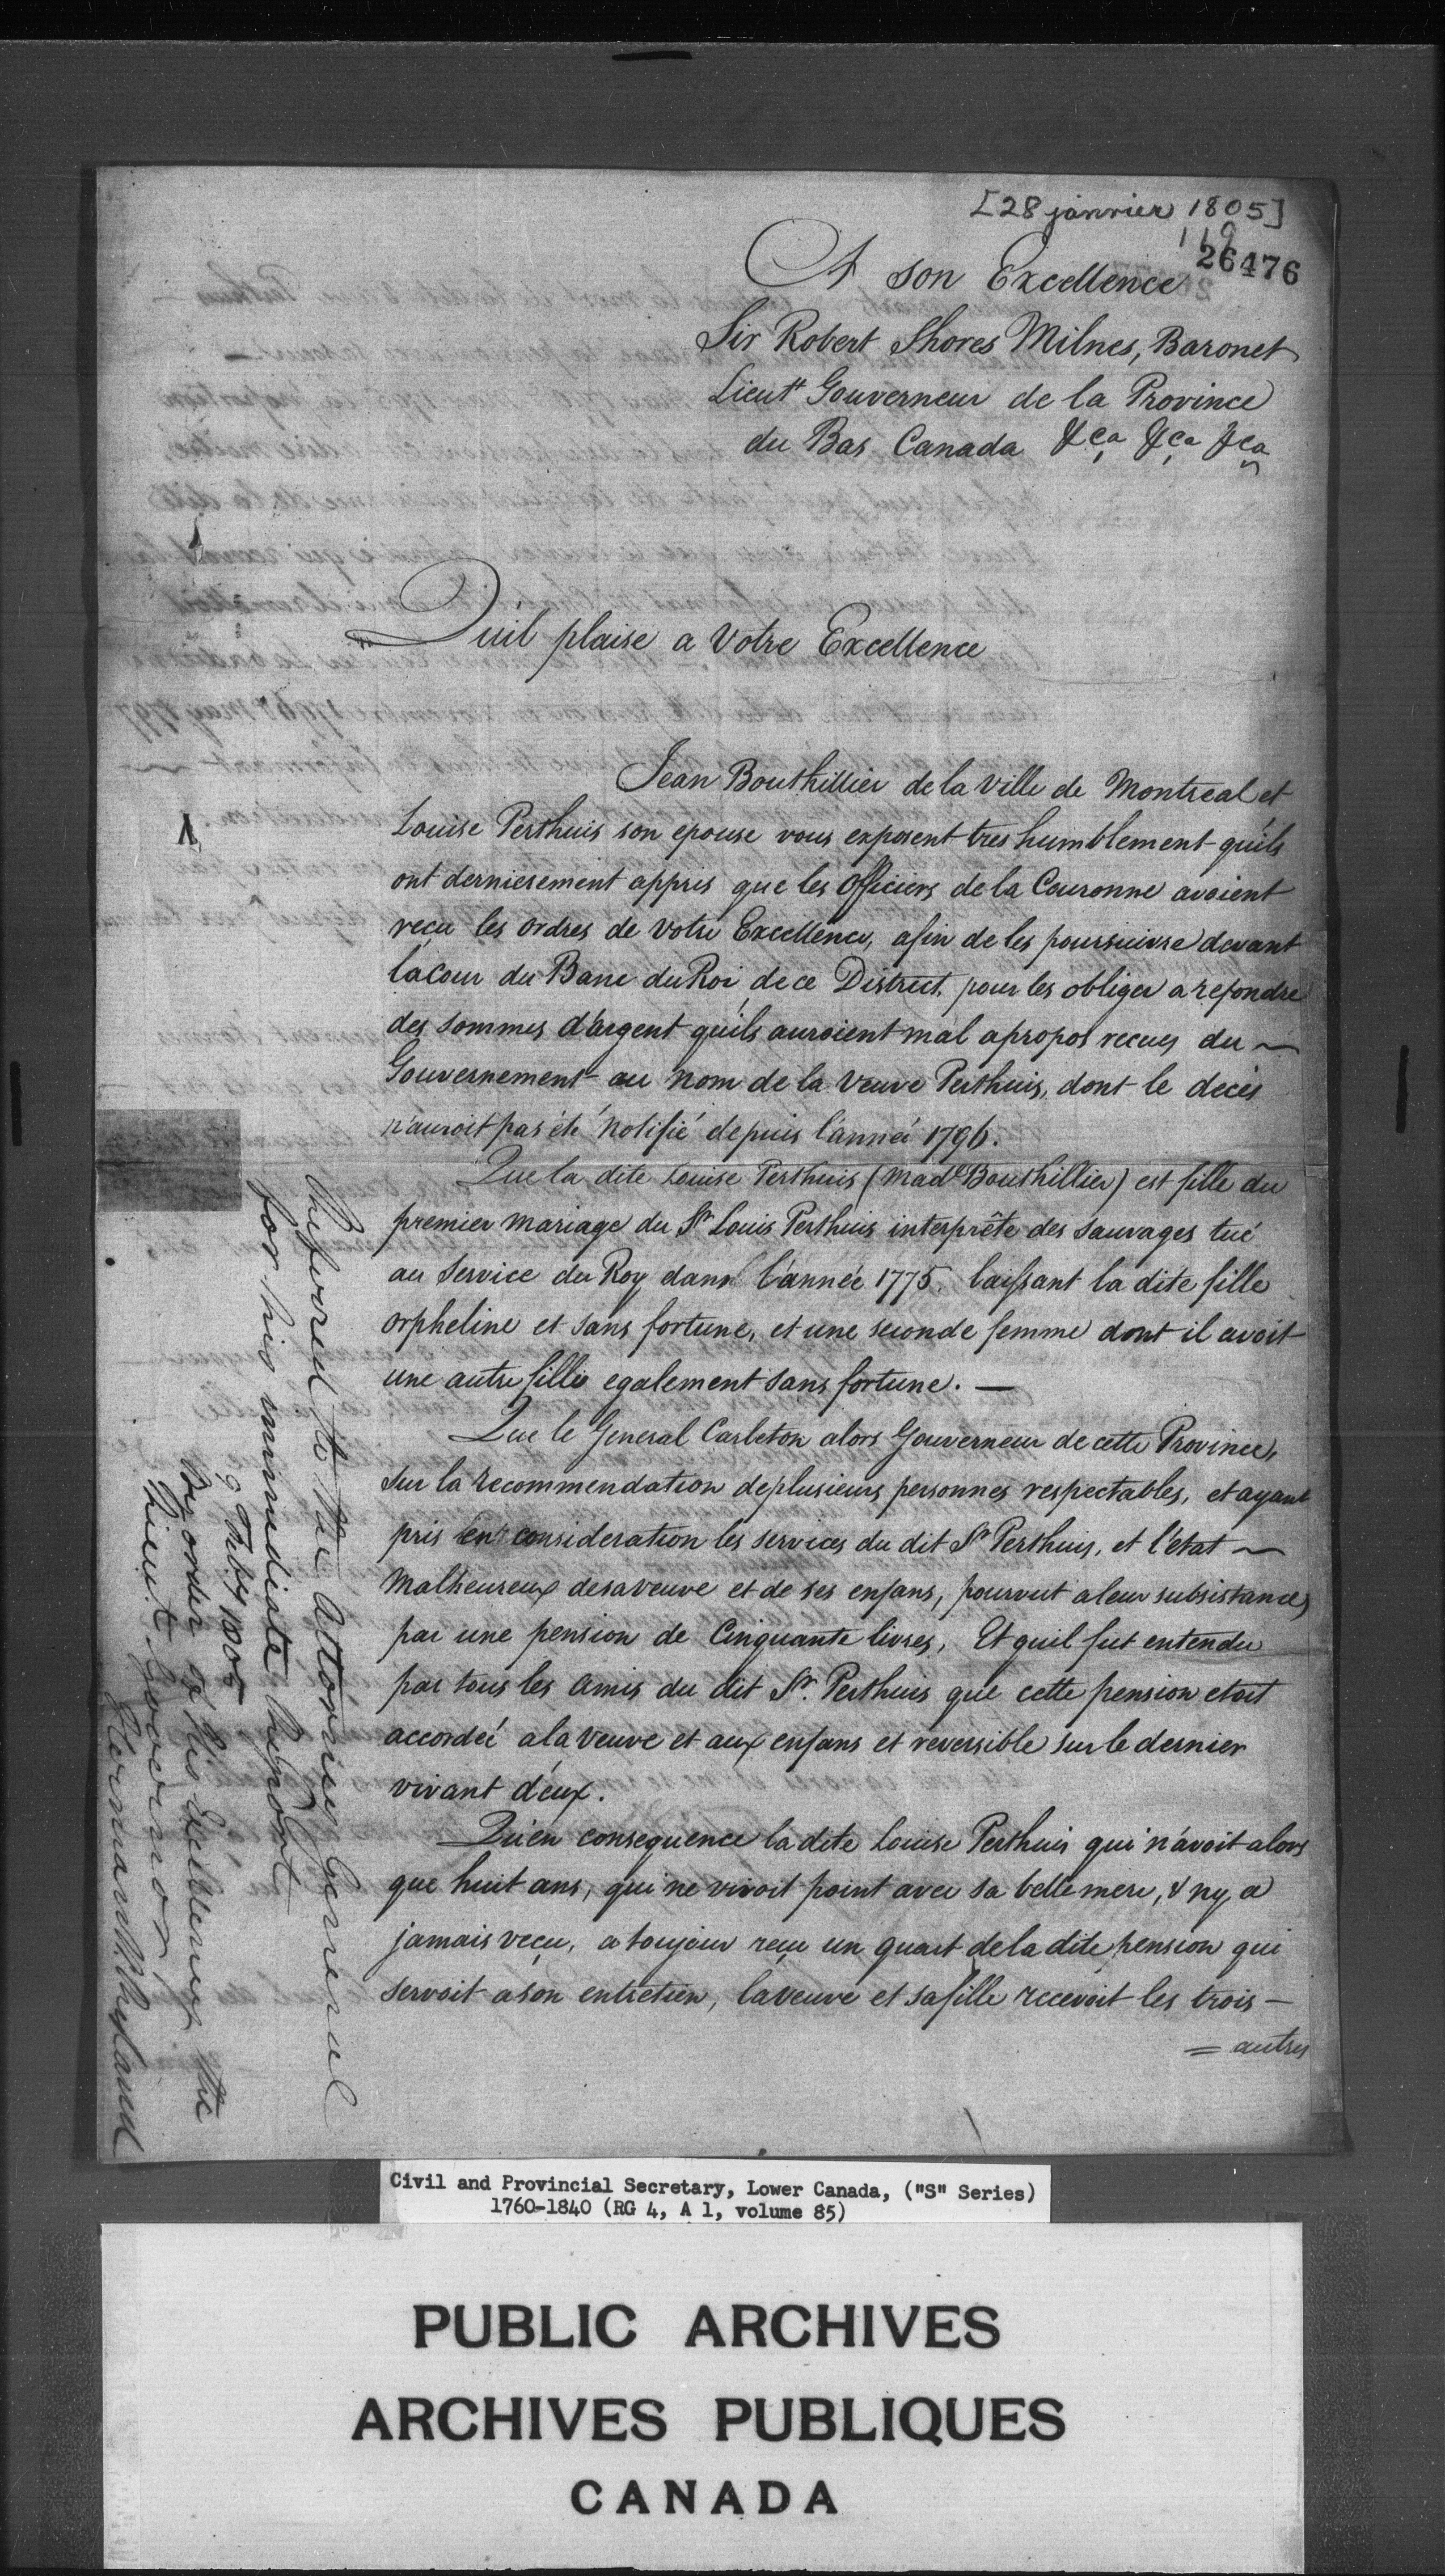 [28 janvier 1805]
119
26476
A son Excellence
Sir Robert Shores Milnes, Baronet
Lieutt Gouverneur de la Province
du Bas Canada &ca &ca &ca
Quil plaise a Votre Excellence
Jean Bouthillier de la Ville de Montreal et
Louise Perthuis son epouse vous exposent tres humblement qu'ils
ont dernierement appris que les Officiers de la Couronne avoient
reçu les ordres de Votre Excellence, afin de les poursuivre devant
la Cour du Banc du Roi de ce District, pour les obliger a refondre
des sommes d'argent qu'ils auroient mal apropos recues du ~
Gouvernement au nom de la Veuve Perthuis, dont le decès
n'auroit pas été notifié depuis l'anneé 1796.
Que la dite Louise Perthuis (Made Bouthillier) est fille du
premier mariage du Sr Louis Perthuis interprête des Sauvages tué
au Service du Roy dans l'année 1775. laissant la dite fille
orpheline et sans fortune, et une seconde femme dont il avoit
une autre fille egalement sans fortune. —
Que le General Carleton alors Gouverneur de cette Province,
sur la recommendation de plusieurs personnes respectables, et ayant
pris en consideration les services du dit Sr Perthuis, et l'etat ~
Malheureux de sa veuve et de ses enfans, pourvut a leur subsistance,
par une pension de Cinquante livres, Et quil fut entendu
par tous les amis du dit Sr. Perthuis que cette pension etoit
accordeé a la Veuve et aux enfans et reversible sur le dernier
vivant d'eux.
Qu'en consequence la dite Louise Perthuis qui n'avoit alors
que huit ans, qui ne vivoit point avec sa belle mere, & ny a
jamais veçu, a toujour reçu un quart de la dite pension qui
servoit a son entretien, la veuve et sa fille recevoit les trois —
= autres
Referred to the Attorney General
for his immediate Report
9 Feby 1805
By order of His Excellency the
Lieut. Governor,
Herman W. Ryland
Civil and Provincial Secretary, Lower Canada, ("S" Series)
1760-1840 (RG 4, A 1, volume 85)
PUBLIC ARCHIVES
ARCHIVES PUBLIQUES
CANADA